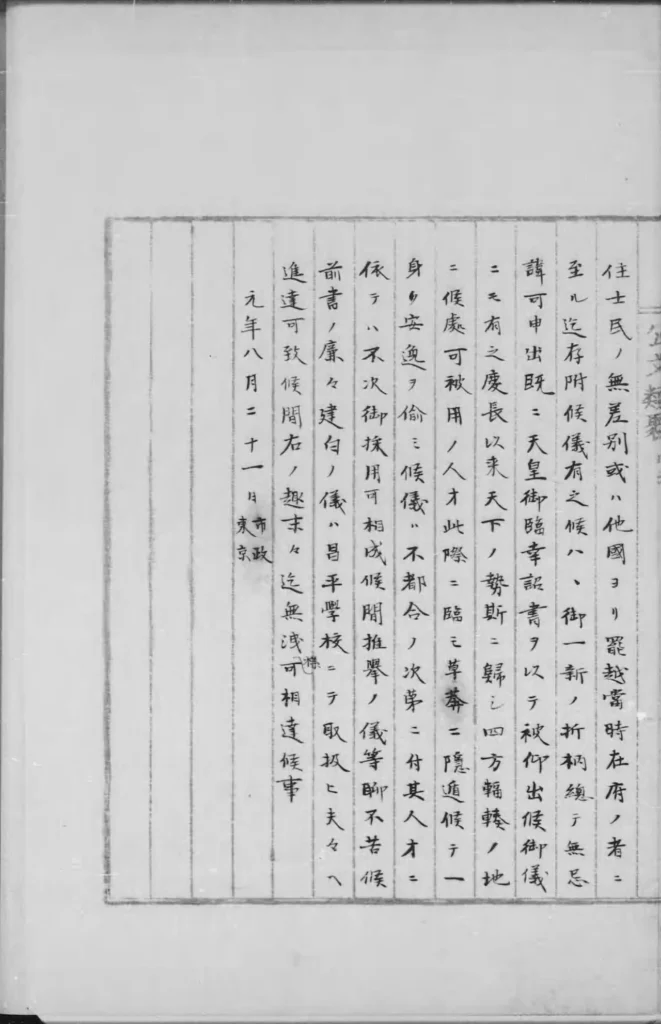 住士民ノ無差別或ハ他國ヨリ罷越當時在府ノ者ニ
至ル迄存附候儀有之候ハヽ御一新ノ折柄總テ無忌
諱可申出既ニ天皇御臨幸詔書ヲ以テ被仰出候御儀
ニモ有之慶長以来天下ノ勢斯ニ歸シ四方輻輳ノ地
ニ候處可被用ノ人才此際ニ臨ミ草莽ニ隱遁候テ一
身ノ安逸ヲ偷ミ候儀ハ不都合ノ次第ニ付其人才ニ
依テハ不次御採用可相成候間推擧ノ儀等聊不苦候
前書ノ廉々建白ノ儀ハ昌平學校ニテ取扱ヒ夫々ヘ
進達可致候間右ノ趣末々迄無洩様可相達候事
元年八月二十一日 市政
東京